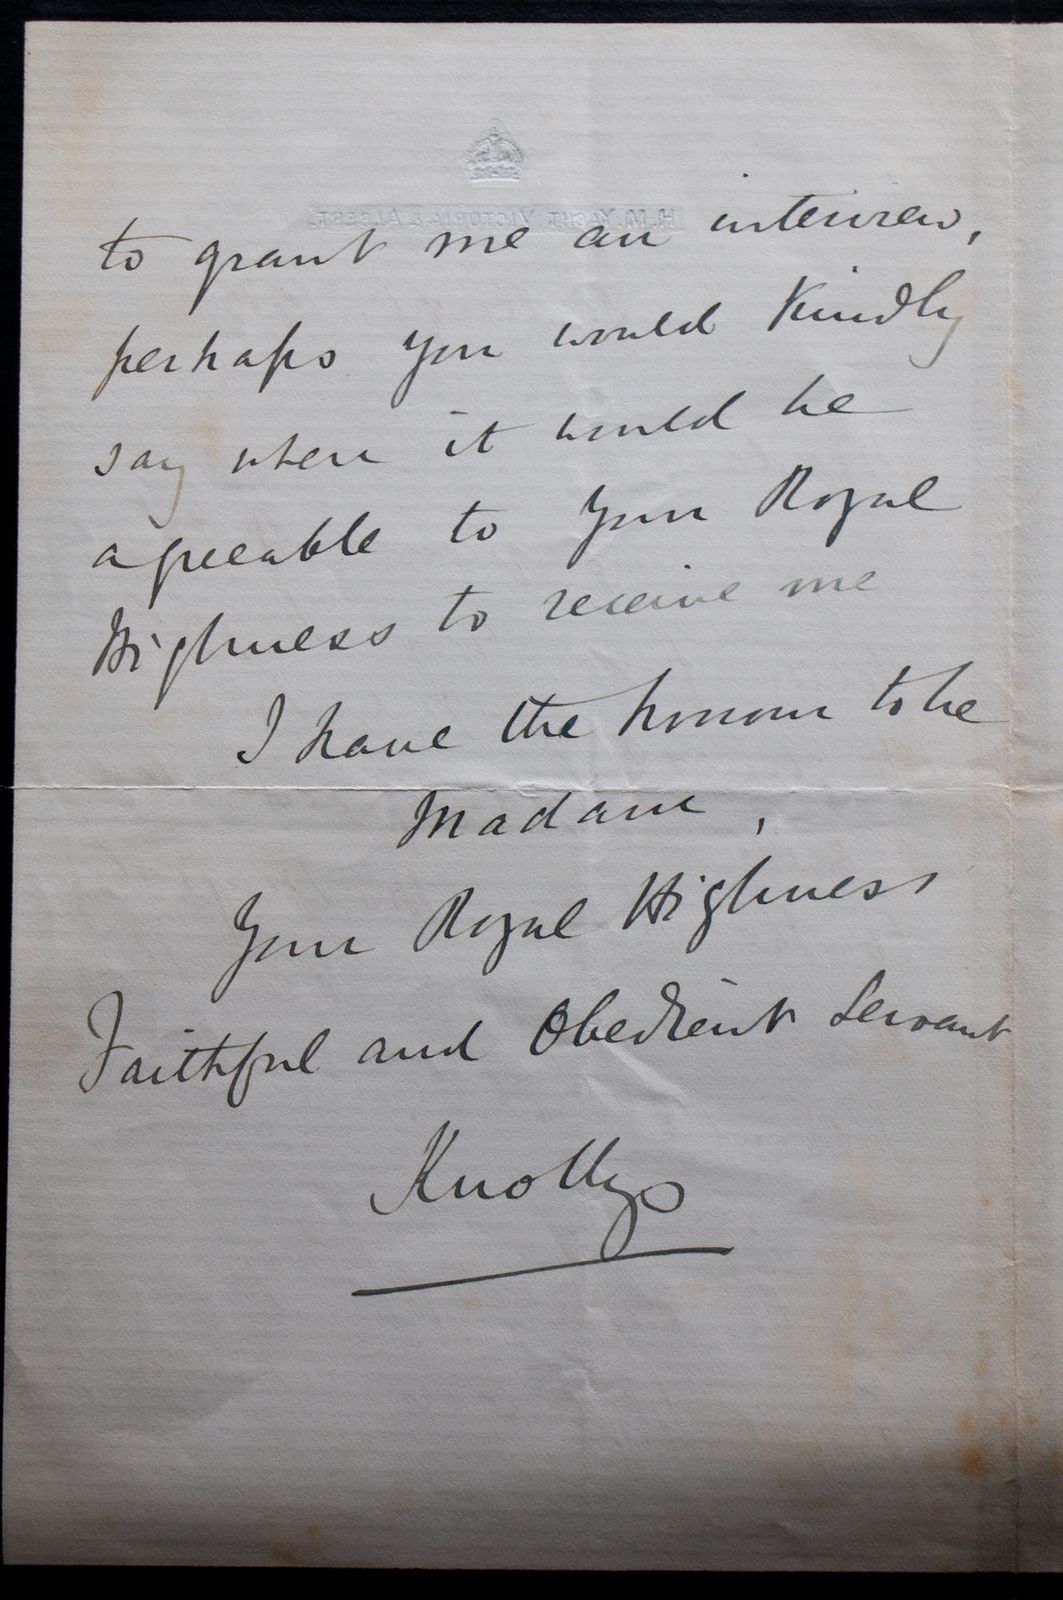 H.M. YACHT VICTORIA & ALBERT.
to grant me an interview,
perhaps you would kindly
say when it would be
agreeable to Your Royal
Highness to receive me
I have the honour to be
Madam,
Your Royal Highness
Faithful and Obedient Servant
Knollys